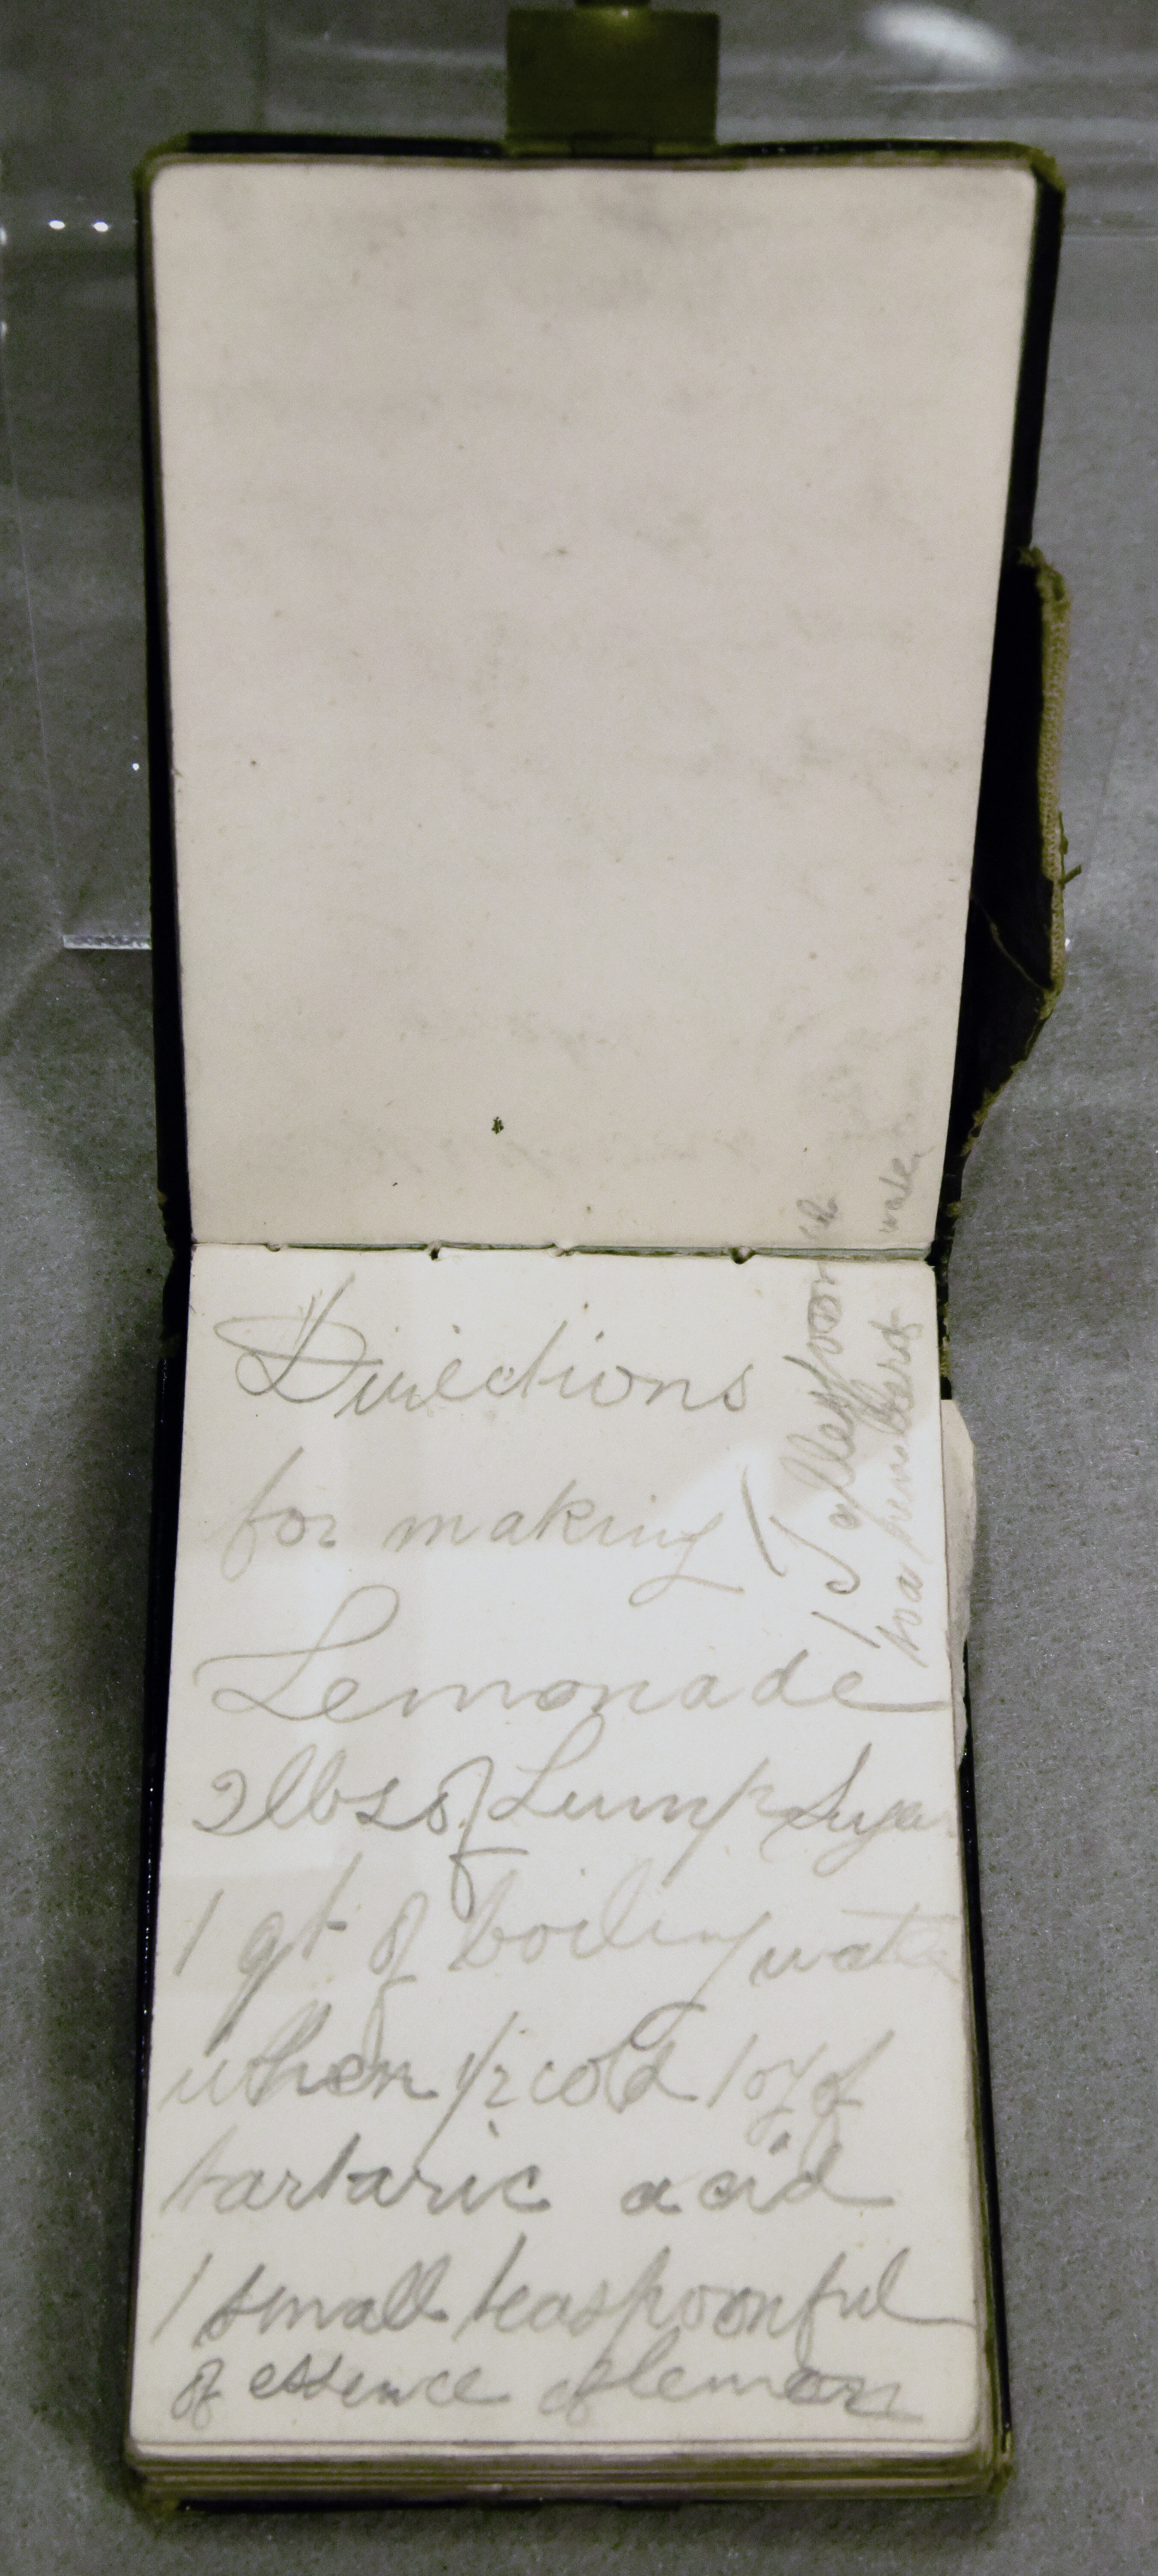 Directions
for making
Lemonade
2lbs of Lump Sugar
1 qt of boiling water
when 1/2 cold 1 oz of
tartaric acid
1 small teaspoonful
of essence of lemon
1 Tablespoon
to a tumbler of water